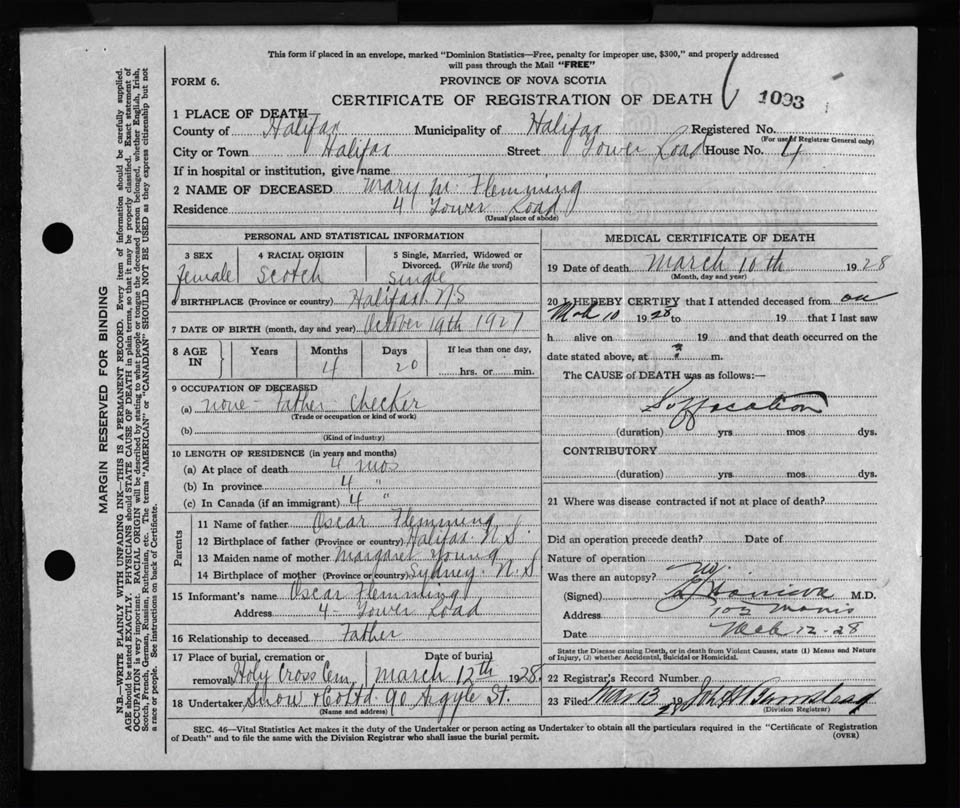 This form if placed in an envelope, marked "Dominion Statistics—Free, penalty for improper use, $300," and properly addressed
will pass through the Mail "FREE"
FORM 6.
PROVINCE OF NOVA SCOTIA
CERTIFICATE OF REGISTRATION OF DEATH
1093
1 PLACE OF DEATH
County of Halifax Municipality of Halifax Registered No.
(For use of Registrar General only)
City or Town Halifax Street Tower Road House No. 4
If in hospital or institution, give name
2 NAME OF DECEASED Mary M. Flemming
Residence 4 Tower Road
(Usual place of abode)
PERSONAL AND STATISTICAL INFORMATION
3 SEX
female
4 RACIAL ORIGIN
Scotch
5 Single, Married, Widowed or
Divorced. (Write the word)
Single
6 BIRTHPLACE (Province or country) Halifax N S
7 DATE OF BIRTH (month, day and year) October 19th 1927
8 AGE
IN
Years
Months
4
Days
20
If less than one day,
hrs. or min.
9 OCCUPATION OF DECEASED
(a) none - Father Checker
(Trade or occupation or kind of work)
(b)
(Kind of industry)
10 LENGTH OF RESIDENCE (in years and months)
(a) At place of death 4 mos
(b) In province 4 "
(c) In Canada (if an immigrant) 4 "
Parents
11 Name of father Oscar Flemming
12 Birthplace of father (Province or country) Halifax N.S.
13 Maiden name of mother Margaret Young
14 Birthplace of mother (Province or country) Sydney N.S
15 Informant's name Oscar Flemming
Address 4 - Tower Road
16 Relationship to deceased Father
17 Place of burial, cremation or
removal Holy Cross Cem
Date of burial
March 12th 1928
18 Undertaker Snow & Co Ltd 90 Argyle St.
(Name and address)
MEDICAL CERTIFICATE OF DEATH
19 Date of death March 10th 1928
(Month, day and year)
20 I HEREBY CERTIFY that I attended deceased from on
Mch 10 1928 to 19 that I last saw
h alive on 19 and that death occurred on the
date stated above, at ? m.
The CAUSE of DEATH was as follows:—
Suffocation
(duration) yrs mos dys.
CONTRIBUTORY
(duration) yrs mos dys.
21 Where was disease contracted if not at place of death?
Did an operation precede death? Date of
Nature of operation
Was there an autopsy? no.
(Signed) M.D.
Address
Date Mch 12-28
State the Disease causing Death, or in death from Violent Causes, state (1) Means and Nature
of Injury, (2) whether Accidental, Suicidal or Homicidal.
22 Registrar's Record Number
23 Filed Mar 13 1928
(Division Registrar)
SEC. 46—Vital Statistics Act makes it the duty of the Undertaker or person acting as Undertaker to obtain all the particulars required in the "Certificate of Registration
of Death" and to file the same with the Division Registrar who shall issue the burial permit.
(OVER)
MARGIN RESERVED FOR BINDING
N.B.—WRITE PLAINLY WITH UNFADING INK—THIS IS A PERMANENT RECORD. Every item of information should be carefully supplied.
AGE should be stated EXACTLY. PHYSICIANS should STATE CAUSE OF DEATH in plain terms, so that it may be properly classified. Exact statement of
OCCUPATION is very important. RACIAL ORIGIN will be described by stating to what people or tongue the deceased person belonged, whether English, Irish,
Scotch, French, German, Russian, Ruthenian, etc. The terms "AMERICAN" or "CANADIAN" SHOULD NOT BE USED as they express citizenship but not
a race or people. See instructions on back of Certificate.